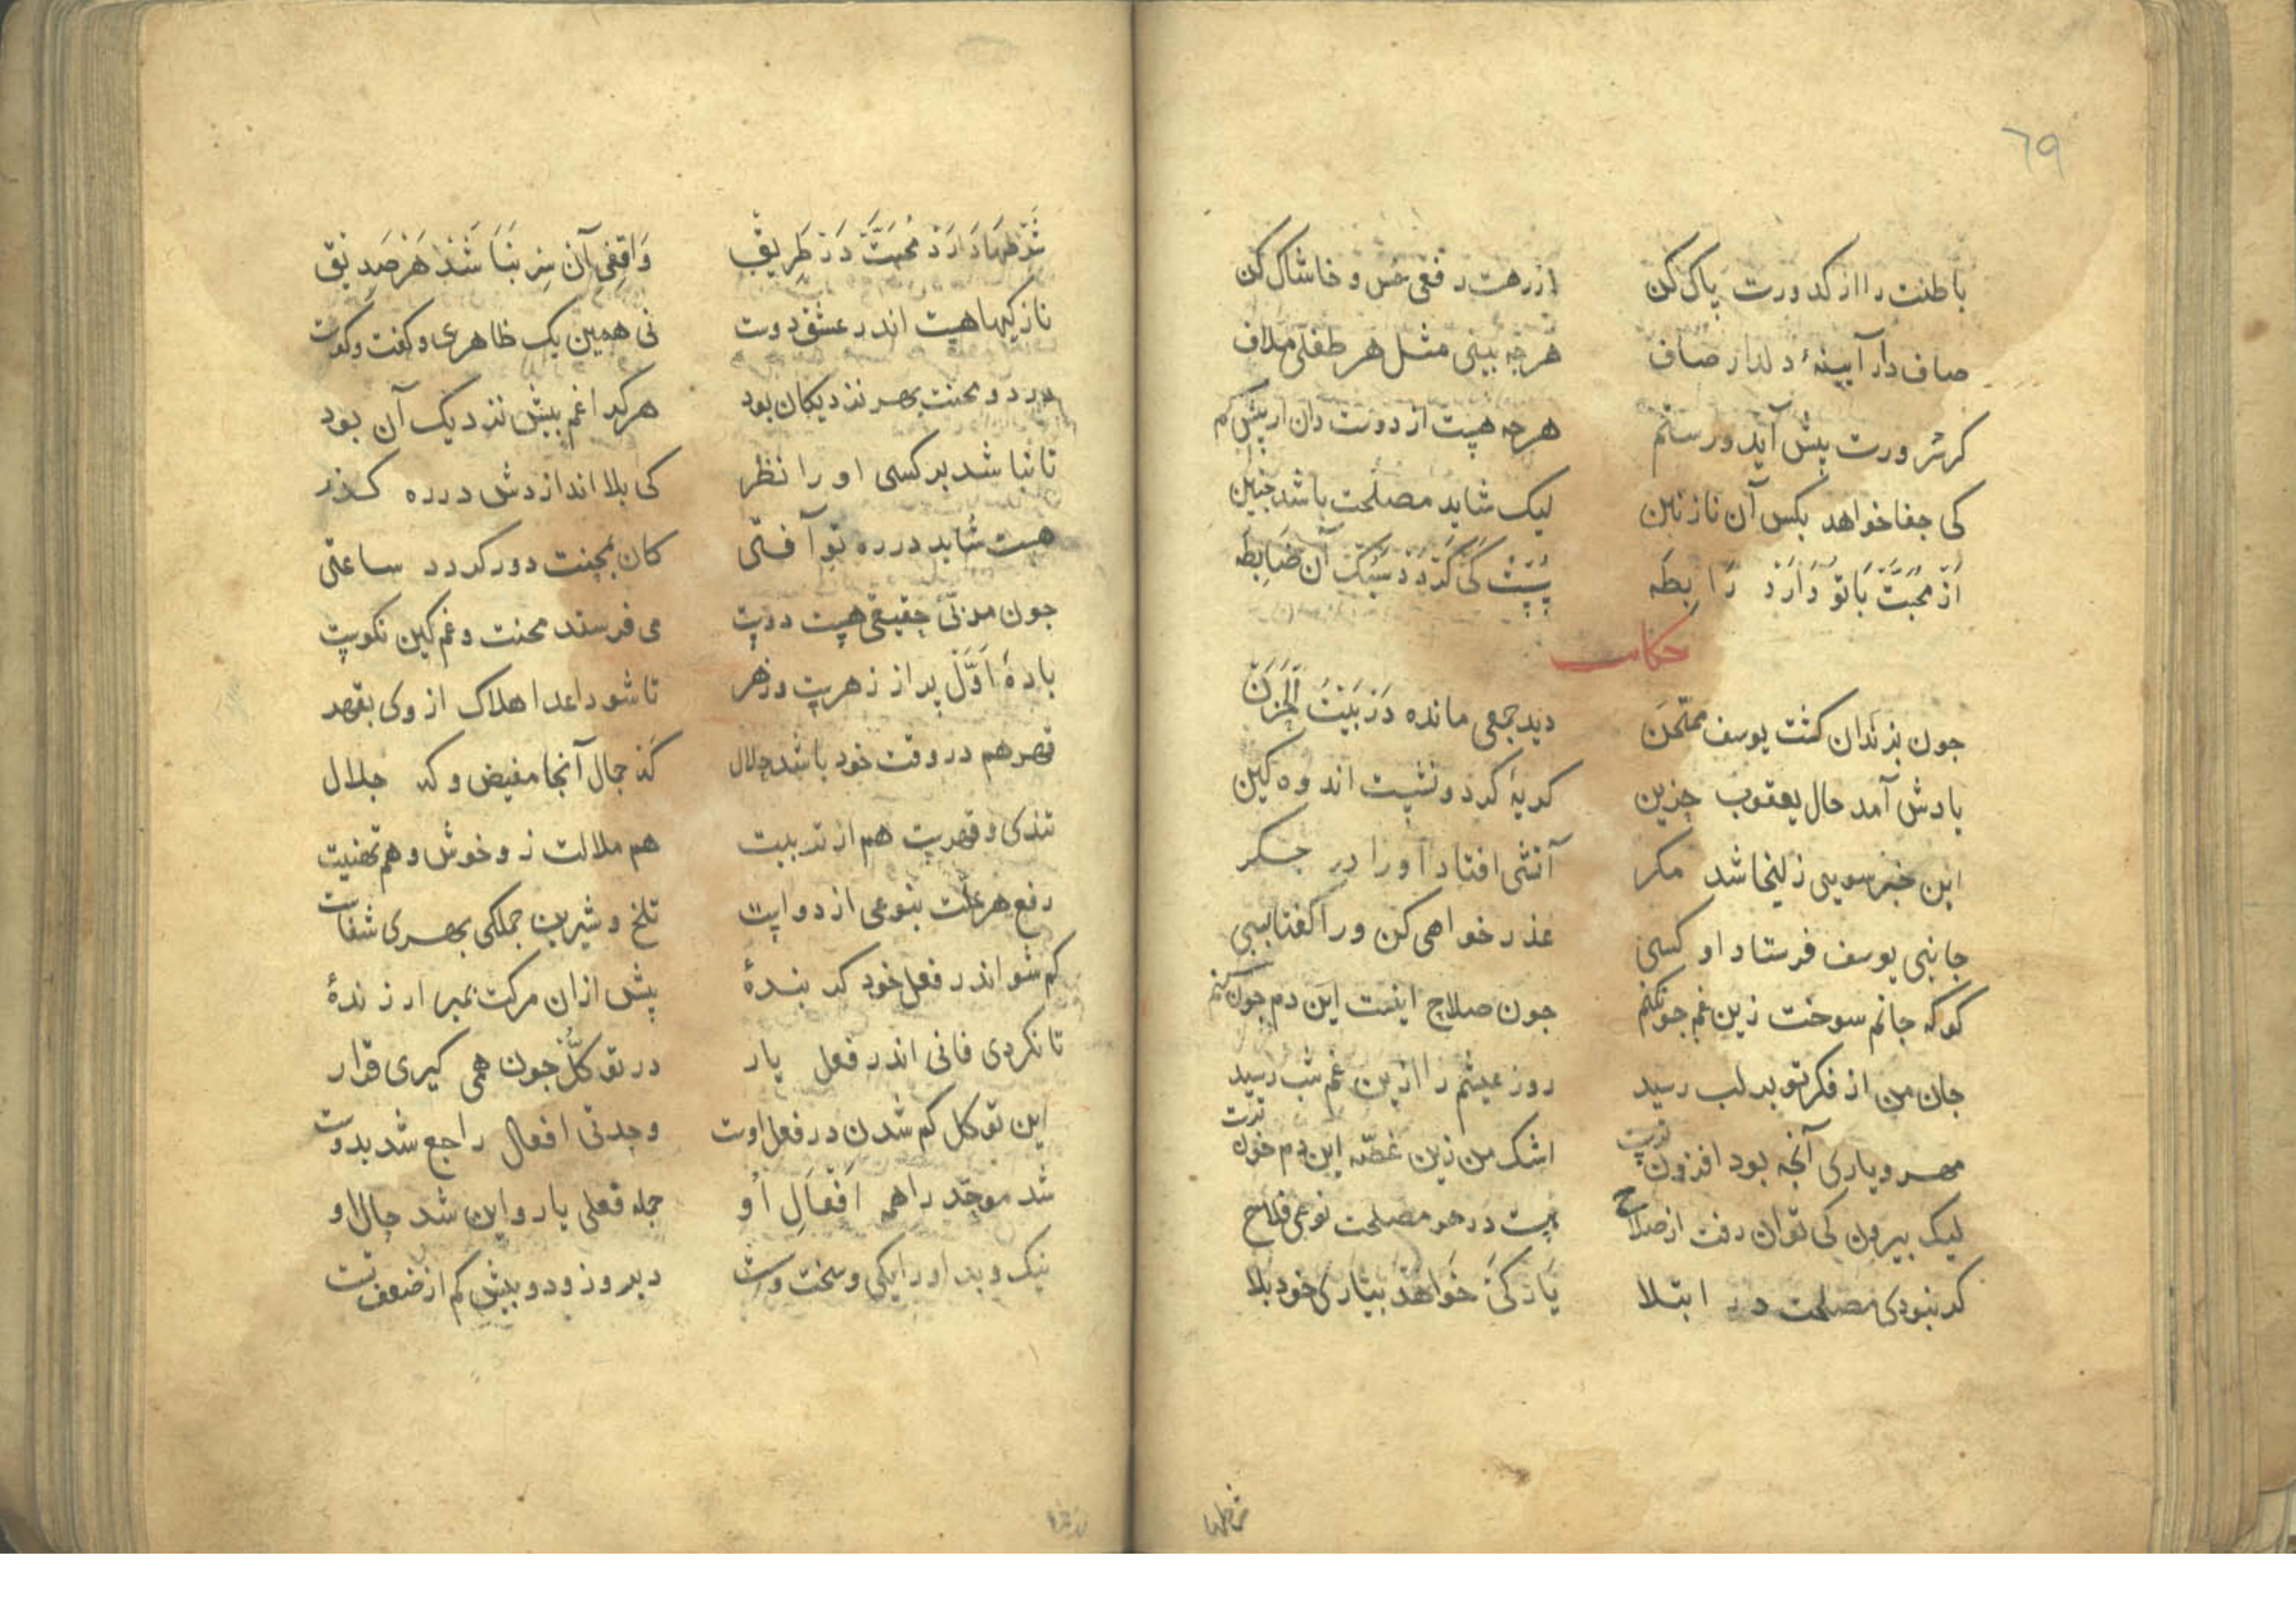 ٦٩
باطنت را از کدورت پاک کن از رهت رفعی خس و خاشاک کن
صاف دار آیینۀ دلدار صاف هرچه بینی مثل هر طفلی ملاف
کر ورت پیش آید ور ستم هرچه هست از دوست دان از بیش کم
کی جفا خواهد بکس آن نازنین لیک شاید مصلحت باشد جنین
از محبت با تو دارد رابطه کی کردد آن ضابطه
حکایت
جون بزندان کشت یوسف ممتحن دید جمعی مانده در بیت الحزن
یادش آمد حال یعقوب حزین کریۀ کرد و نشست اندوه کین
این خبر سویی زلیخا شد مکر آتشی افتاد او را در جکر
جانبی یوسف فرستاد او کسی عذر خواهی کن ورا کفتا بسی
کو که جانم سوخت زین غم جون کنم جون صلاح اینست این دم جون کنم
جان من از فکر تو بر لب رسید روز عیشم را ازین غم شب رسید
مهر و یاری آنجه بود افزون ترست اشک من زین غصّه این دم خون ترست
لیک بیرون کی توان رفت از صلاح هست در هر مصلحت نوعی فلاح
کر نبودی مصلحت در ابتلا یار کی خواهد بیار خود بلا
شرطها
شرطها دارد محبت در طریق واقفی آن سر نباشد هر صدیق
نازکیها هست اندر عشق دوست نی همین یک ظاهری و کفت و کوست
درد و محنت بهر نزدیکان بود هر کرا غم بیش نزدیک آن بود
تا نباشد بر کسی او را نظر کی بلا اندازدش در ره کذر
هست شاید در ره تو آفتی کان بمحنت دور کردد ساعتی
جون مربّی حقیقی هست دوست می فرستد محنت و غم کین نکوست
بادۀ اوّل پر از زهرست و زهر تا شود اعدا هلاک از وی بقهر
قهر هم در وقت خود باشد حلال که جمال آنجا مفیض و که جلال
تندی و قهرست هم از تربیت هم ملالت زو خوش و هم تهنیت
رفع هر علّت بنوعی از دواست تلخ و شیرین جملکی بهری شفاست
کم شو اندر فعل خود کر بندۀ پیش ازان مرکت بمیر ار زندۀ
تا نکردی فانی اندر فعل یار در توکّل جون همی کیری قرار
این توکل کم شدن در فعل اوست وحدتی افعال راجع شد بدوست
شد موحّد را همه افعال او جمله فعلی یار و این شد حال او
نیک و بد او را یکی و سخت و سست دیر و زود و بیش کم از ضعف تست